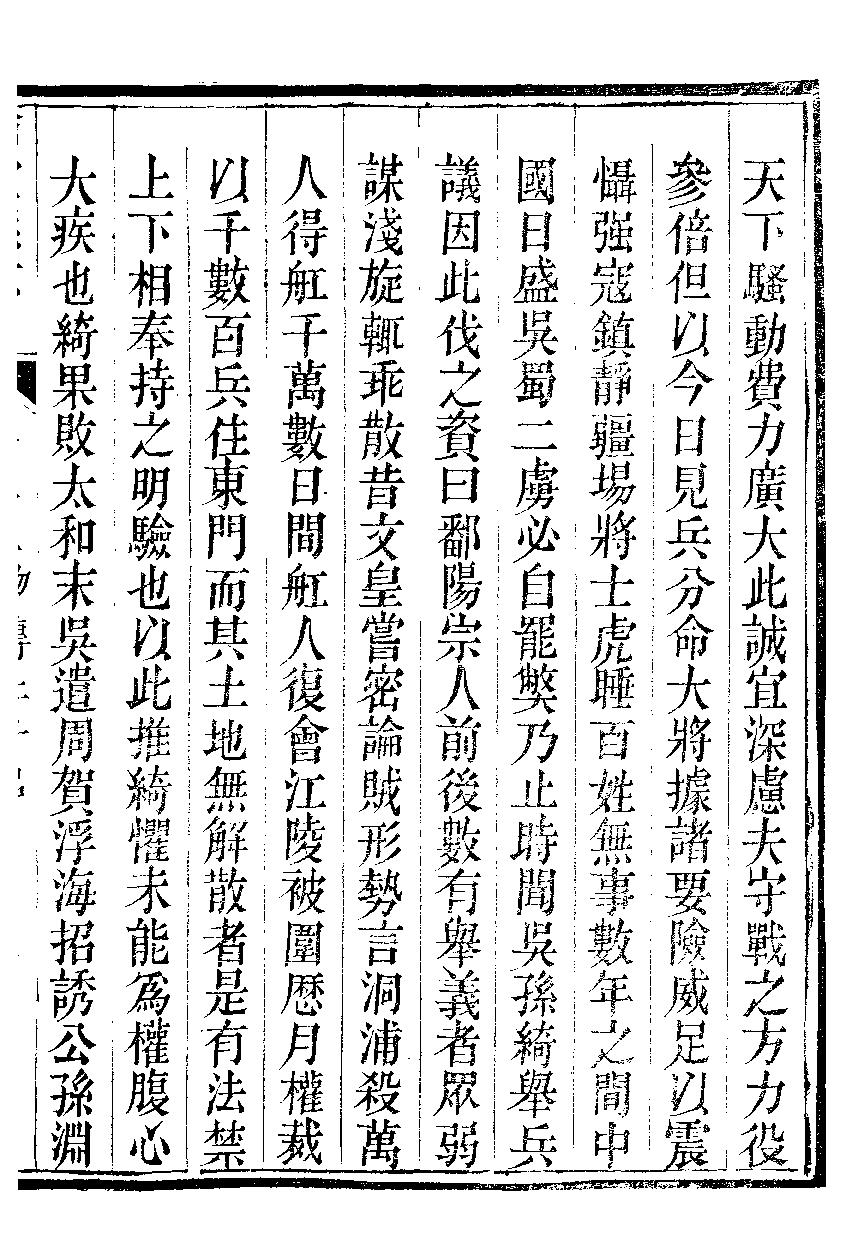 天下騷動費力廣大此誠宜深慮夫守戰之方力役
參倍但以今日見兵分命大將據諸要險威足以震
懾强寇鎮靜疆場將士虎睡百姓無事數年之間中
國日盛吳蜀二虜必自罷獘乃止時聞吳孫綺舉兵
議因此伐之資曰鄱陽宗人前後數有舉義者眾弱
謀淺旋輒乖散昔文皇嘗密論賊形勢言洞浦殺萬
人得舡千萬數日間舡人復會江陵被圍厯月權裁
以千數百兵住東門而其土地無解散者是有法禁
上下相奉持之明驗也以此推綺懼未能爲權腹心
大疾也綺果敗太和末吳遣周賀浮海招誘公孫淵